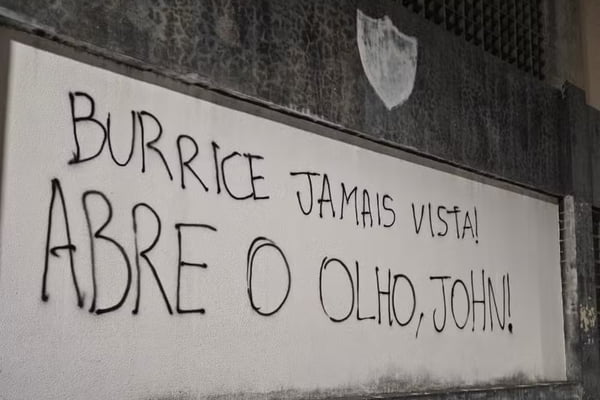 BURRICE JAMAIS VISTA!
ABRE O OLHO, JOHN!